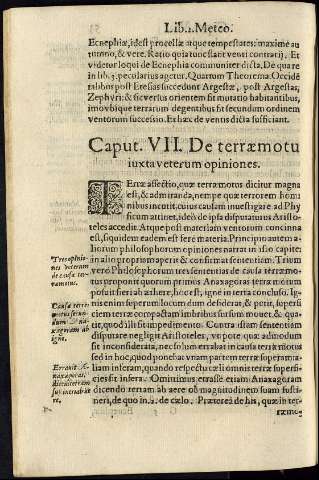 Lib.1. Meteo.
Ecnephiæ, idest procellæ atque tempestates: maximè au
tumno, & vere. Ratio quia tunc flant venti contrarij. Et
videtur loqui de Ecnephia communiter dicta. De qua re
in lib. 3. peculiarius agetur. Quartum Theorema: Occidē
talibus post Etesias succedunt Argestæ, post Argestas,
Zephyri: & sic versùs orientem fit mutatio habitantibus,
imovbique terrarum degentibus fit secundum ordinem
ventorum successio. Et hæc de ventis dicta sufficiant.
Caput. VII. De terræmotu
iuxta veterum opiniones.
TErræ affectio, quæ terræmotus dicitur magna
est, & admiranda, nempe quæ terrorem homi
nibus incutit, cuius causam inuestigare ad Phy
sicum attinet, ideò de ipsa disputaturus Aristo-
teles accedit. Atque post materiam ventorum concinna
est, siquidem eadem est fere materia. Principio autem a-
liorum philosophorum opiniones narrat in isto capite
in alio propriam aperit & confirmat sententiam. Trium
verò Philosophorum tres sententias de causa terræmo-
tus proponit quorum primus Anaxagoras terræ motum
posuit fieri ab æthere, hoc est, igne in terra concluso. Ig-
nis enim superum locum dum desiderat, & petit, superfi
ciem terræ compactam imbribus sursum mouet, & qua
tit, quod illi sit impedimento. Contra istam sententiam
disputare negligit Aristoteles, vt pote quæ admodum
sit inconsiderata, nec solum errabat in causa terræmotus
sed in hoc, quod ponebat vnam partem terræ supremā ta
liam inferam, quando respectu cœli omnis terræ superfi-
cies est infera. Omittimus errasse etiam Anaxagoram
dicendo terram ab aere ob magnitudinem suam susti-
neri, de quo in. 2. de cælo. Præterea de his, quæ in ter-
ræmo-
Tres ophinio
nes veterum
de causa ter-
ræmotus.
Causa terræ
motus secun
dum Ana-
xagoram ab
igne.
Errauit A-
naxagoras,
dicens terram